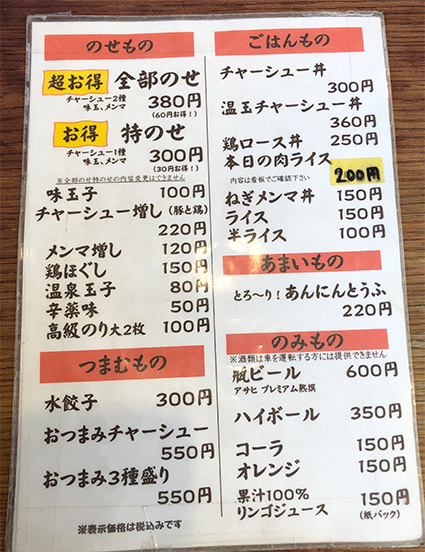 のせもの
超お得 全部のせ
チャーシュー2種
味玉、メンマ 380円
(60円お得！)
お得 特のせ
チャーシュー1種
味玉、メンマ 300円
(30円お得！)
※全部のせ特のせの内容変更はできません
味玉子 100円
チャーシュー増し(豚と鶏)
220円
メンマ増し 120円
鶏ほぐし 150円
温泉玉子 80円
辛薬味 50円
高級のり大2枚 100円
つまむもの
水餃子 300円
おつまみチャーシュー
550円
おつまみ3種盛り
550円
※表示価格は税込みです
ごはんもの
チャーシュー丼
300円
温玉チャーシュー丼
360円
鶏ロース丼 250円
本日の肉ライス
内容は看板でご確認下さい 200円
ねぎメンマ丼 150円
ライス 150円
半ライス 100円
あまいもの
とろ〜り！あんにんとうふ
220円
のみもの
※酒類は車を運転する方には提供できません
瓶ビール 600円
アサヒ プレミアム熟撰
ハイボール 350円
コーラ 150円
オレンジ 150円
果汁100%
リンゴジュース 150円
(紙パック)